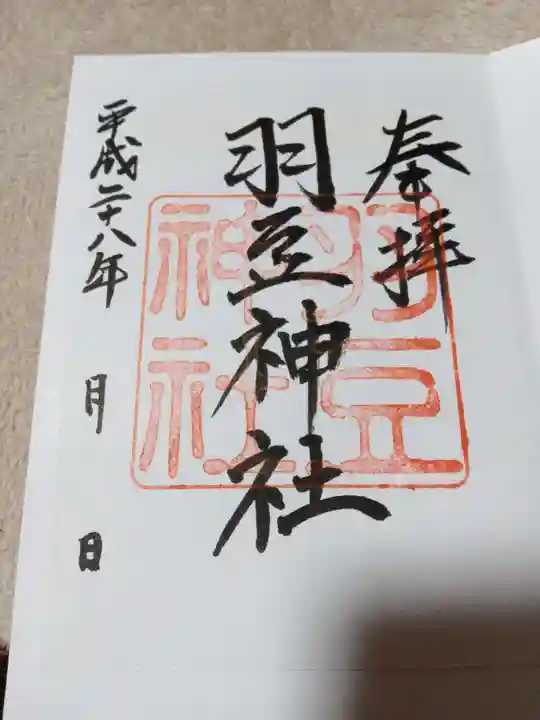 奉拝
羽豆神社
羽豆神社
平成二十八年 月 日